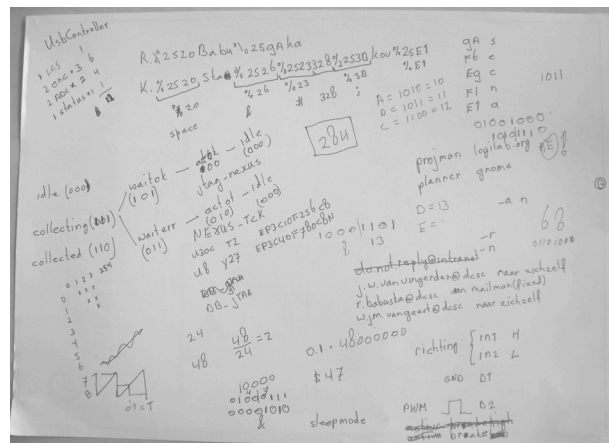 UsbController
1 LCS 1
2 enc × 3 6
2 ADC × 2 4
1 status × 1 1
R.%2520Babu%25gAka
K.%2520.Sta%2526%2523328%253Bkov%25E1
%20 %26 %23 %3B %E1
space & # 328 ;
gA s
F6
Eg c
F1 n
E1 a
A = 1010 = 10
B = 1011 = 11
C = 1100 = 12
1011
01001000
284
idle (000)
collecting
collected (110)
waitok
(101)
idle
(000)
jtag-nexus
waiterr
(011)
actot - idle
(010) (000)
NEXUS-TCK
U30C T2 EP3C10F256C8
U8 Y27 EP3C40F780C8N
DB_JTAG
projman logilab.org
planner gnome
D=13
E=
-a n
-r
-n
10001101
8 13
68
01101000
do.not.reply@intranet
j.w.vanwingerden@dcsc naar zichzelf
r.babuska@dcsc van mailman (fixed)
w.j.m.vangeert@dcsc naar zichzelf
0 1 2 3 254
0
1
2
3
4
5
6
7
8
dt=T
24 48/24 = 2
48
0.1 · 48000000
$47
10000
01000111
00001010
&
sleepmode
richting
in1 H
in2 L
GND D1
PWM D2
active brake high
active brake